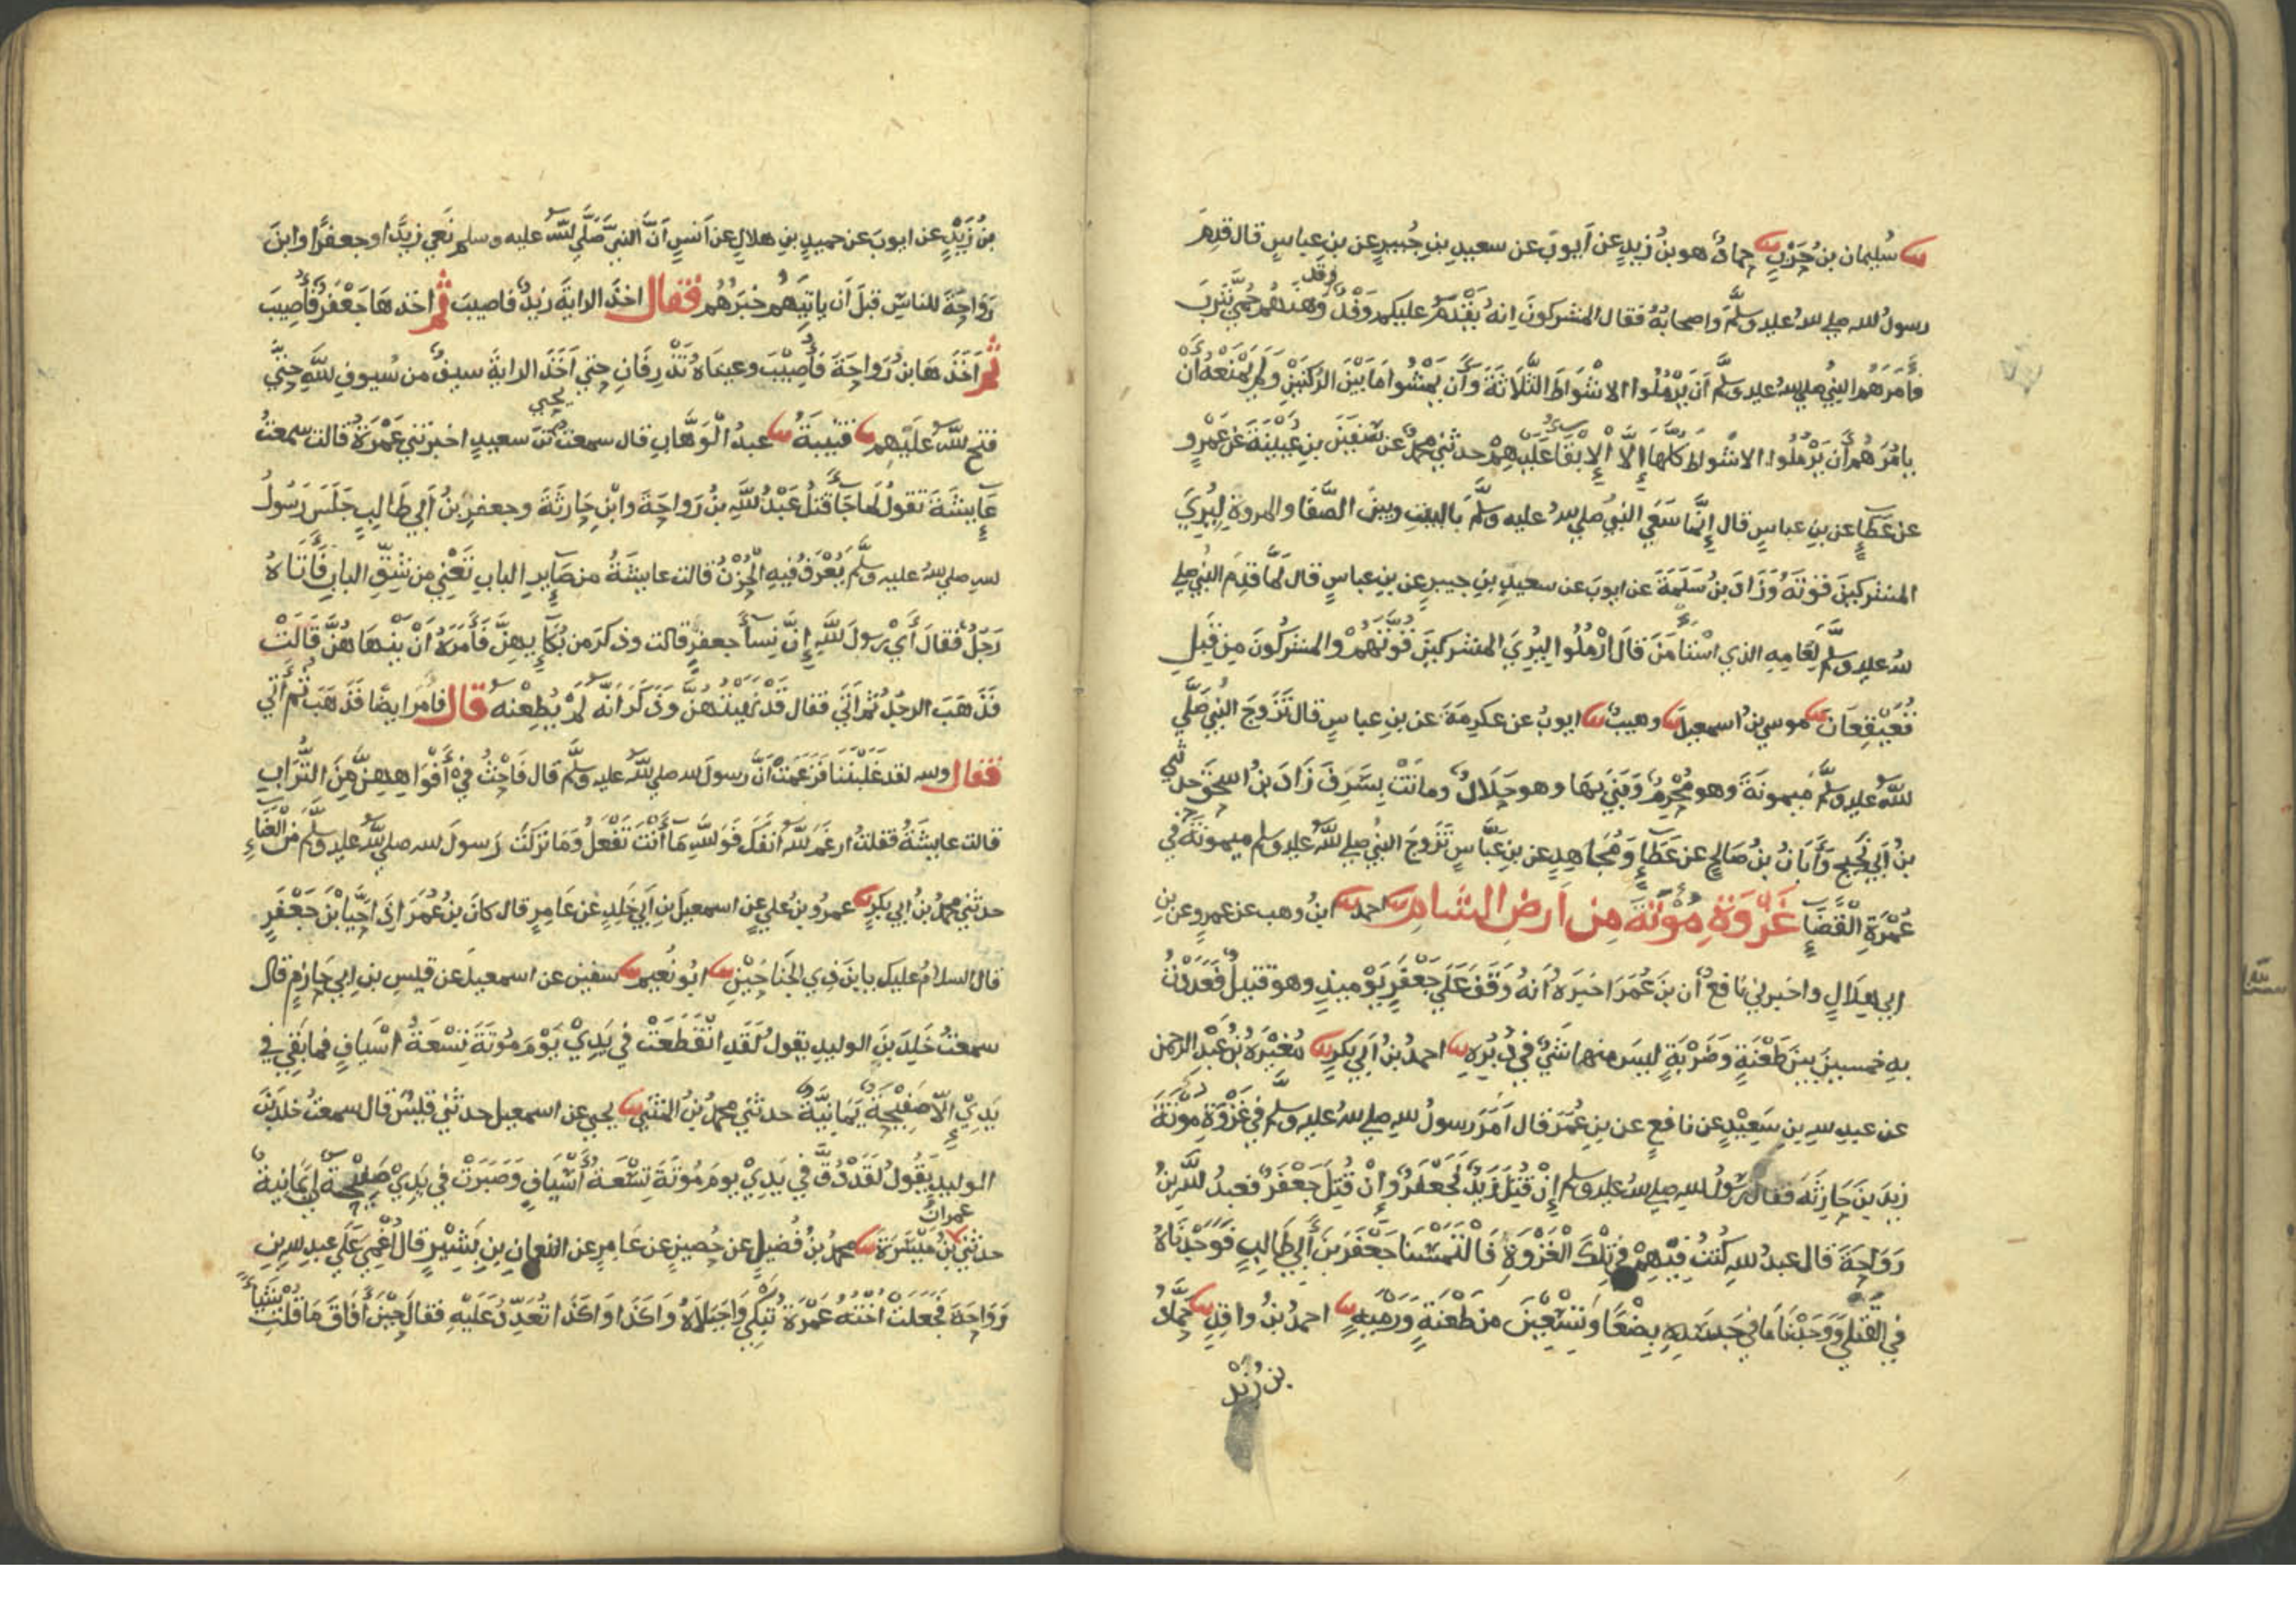 ثنا سُليمان بن حَرْبٍ ثنا حمادٌ هو بنُ زيدٍ عن أيوبَ عن سعيدِ بنِ جُبيرٍ عن بن عباسٍ قال قدِمَ
رسولُ الله صلى الله عليه وسلَّمَ واصحابهُ فقال المشركونَ انهُ يَقْدَمُ عليكم وَفْدٌ وَهَنَهُم حُمَّى يَثْرِبَ
وقد
فأَمَرَهُم النبيُّ صلى الله عليه وسلَّم أَن يَرْمُلُوا الاشْوَاطَ الثَّلَاثَةَ وَأَن يَمْشُوا مَا بَيْنَ الرُّكْنَيْنِ وَلَم يَمْنَعْهُ أَنْ
يامُرَهُم أَن يَرْمُلُوا الاشْواطَ كلَّهَا إِلَّا الإِبْقَا عَلَيْهِمْ حدثني محمدٌ عن سُفْيَنَ بنِ عُيَيْنَةَ عَنْ عَمْرٍو
عن عَطاءٍ عن بن عباسٍ قال إِنَّمَا سَعَى النبيُّ صلى الله عليه وسلَّمَ بالبيتِ وبينَ الصَّفَا والمروةِ لِيُرِيَ
المشركينَ قوتَهُ وَزَادَ بنُ سَلَمَةَ عن ايوبَ عن سعيدِ بنِ جبيرٍ عن بنِ عباسٍ قال لمَّا قدِمَ النبيُّ صلى
الله عليه وسلَّم لِعَامِهِ الذي اسْتَأمَنَ قالَ ارْمُلُوا لِيُرِيَ المشركينَ قُوَّتَهُمْ والمشرِكُونَ مِن قِبَلِ
قُعَيْقِعَانَ ثنا موسى بنُ اسمعيلَ ثنا وهيبٌ ثنا ايوبُ عن عكرِمَةَ عن بنِ عباسٍ قال تَزَوَّجَ النبيُّ صَلَّى
اللهُ عليه وسلَّم مَيمونَةَ وهو مُحْرِمٌ وَبَنَى بِهَا وهو حَلَالٌ وماتَتْ بِسَرِفَ زَادَ بنُ اسحقَ حدثني
بنُ أَبي نَجِيحٍ وَأَبَانُ بنُ صَالحٍ عن عَطَاءٍ وَمُجَاهِدٍ عن بنِ عبَّاسٍ تَزَوَّجَ النبيُّ صلى اللهُ عليه وسلم ميمونَةَ في
عُمْرَةِ الْقَضَاءِ غَزْوَةِ مُوْتَةَ مِن أَرضِ الشَامِ ثنا احمد ثنا ابنُ وهب عن عمرٍو عن بنِ
ابي هِلَالٍ واخبرني نافعٌ أن بنَ عُمَرَ اخبَرَهُ أَنهُ وَقَفَ عَلَى جَعْفَرٍ يَوْميذٍ وهو قتيلٌ فَعَدَدْتُ
بهِ خمسينَ بينَ طَعْنَةٍ وَضَرْبَةٍ ليسَ منها شَيٌ في دُبُرِهِ ثنا احمدُ بنُ أَبي بَكرٍ ثنا مُغيْرَةُ بْنُ عَبْدِ الرَّحمنِ
عن عبدِ الله بنِ سَعيْدٍ عن نافعٍ عن بنِ عُمَرَ قال أَمَّرَ رسولُ اللهِ صلى الله عليه وسلم في غَزْوَةِ مُوتَةَ
زيدَ بنَ حَارِثَةَ فقال رسولُ اللهِ صلى الله عليه وسلم إِنْ قُتِلَ زَيدٌ فَجَعْفَرٌ وَإِنْ قُتِلَ جَعْفَرٌ فعبدُ اللَّهِ بنُ
رَوَاحَةَ قال عبدُ اللهِ كُنْتُ فِيهِمْ في تِلْكَ الْغَزْوَةِ فَالْتَمَسْنَا جَعْفَرَ بنَ أَبي طَالِبٍ فَوَجَدْنَاهُ
في القَتْلَى وَوَجَدْنَا مَا في جَسَدِهِ بِضْعًا وَتِسْعِينَ من طَعْنَةٍ وَرَمْيَةٍ ثنا احمدُ بنُ واقدٍ ثنا حَمَّادُ
بن زَيْد
بنُ زَيْدٍ عن ايوبَ عن حميدِ بنِ هلالٍ عن أَنسٍ أَنَّ النبيَّ صَلَّى اللَّهُ عليه وسلم نَعَى زيدًا وجعفرًا وابنَ
رَوَاحَةَ للناسِ قبلَ أَن ياتِيَهُم خبَرُهُم فقال اخذَ الرايةَ زيدٌ فاصيبَ ثم اخذهَا جَعْفَرٌ فَأُصِيبَ
ثم اَخَذَهَا بنُ رَوَاحَةَ فَأُصِيْبَ وعيناهُ تَذْرِفَانِ حتى أَخَذَ الرايةَ سيفٌ من سُيوفِ اللَّهِ حتَّى
فتحَ اللَّهُ عَلَيْهِم ثنا قتيبَةُ ثنا عبدُ الْوَهَّابِ قال سمعت يحيى بنَ سعيدٍ اخبرَتني عَمْرَةُ قالت سمعتُ
عَايِشَةَ تقولُ لمَّا جَاءَ قتلُ عَبْدِ اللَّهِ بنِ رَواحَةَ وابْنِ حَارِثَةَ وجعفرِ بنِ أَبي طَالبٍ جَلَسَ رَسُولُ
الله صلى الله عليه وسلَّم يُعْرَفُ فيهِ الْحُزْنُ قالت عايشَةُ وانا اطلع من صَايِرِ البابِ تَعْنِي مِن شقِّ البابِ فَأَتَاهُ
رَجُلٌ فقالَ أَيْ رسولَ اللَّهِ إِنَّ نِسَاءَ جعفرٍ قالت وذكرَ من بُكَايِهِنَّ فَأَمَرَهُ اَنْ يَنْهَاهُنَّ قَالَتْ
فَذَهَبَ الرجلُ ثم أَتَى فقال قد نَهَيْتُهُنَّ وَذَكَرَ أَنَّهُ لَمْ يُطِعْنَهُ قال فامَرَ ايضًا فَذَهَبَ ثُمَّ أَتَى
فقال والله لقد غَلَبْنَنَا فَزَعَمَتْ أَنَّ رسولَ الله صلى اللَّهُ عليه وسلَّم قال فَاحْثُ في أَفْوَاهِهِنَّ مِنَ التُّرَابِ
قالت عايشَةُ فقلتُ ارغَمَ اللَّهُ أنفَكَ فَوَ اللَّهِ مَا أَنْتَ تَفْعَلُ وَمَا تَرَكْتَ رَسولَ الله صلى اللَّهُ عليه وسلَّم مِنْ الْعَنَاءِ
حدثني محمدُ بنُ ابي بكرٍ ثنا عمرُو بنُ علي عن اسمعيلَ بنِ أَبي خَلِدٍ عَن عَامِرٍ قال كانَ بنُ عُمَرَ اذَا حَيَّا بْنَ جَعْفَرٍ
قال السلامُ عليك يا بنَ ذِي الجَناحَيْنِ ثنا ابُو نُعيم ثنا سفين عن اسمعيلَ عن قيسِ بنِ ابي حازمٍ قال
سمعتُ خَلِدَ بنَ الوليدِ يقولُ لَقَدِ انْقَطَعَتْ في يَدِيْ يَوْمَ مُوتَةَ تِسْعَةُ أَسْيَافٍ فما بَقِيَ في
يَدِيْ إِلَّا صَفِيْحَةٌ يَمَانِيَّةٌ حدثني محمدُ بنُ المثنَّى ثنا يحيى عن اسمعيل حدثني قيسٌ قال سمعتُ خلدَ بْنَ
الوليدِ يَقُولُ لَقَدْ دُقَّ في يَدِيْ يومَ مُوتَةَ تِسْعَةُ أَسْيَافٍ وَصَبَرَتْ في يَدِيْ صَفِيْحَةٌ يَمَانيةٌ
عمرانُ
حدثني بنُ مَيْسَرَةَ ثنا محمدُ بنُ فُضَيلٍ عن حُصينٍ عن عَامرٍ عن النعمانِ بنِ بَشِيْرٍ قالَ أُغْمِيَ عَلَى عبدِ اللهِ بنِ
رَوَاحَةَ فَجَعَلَتْ اُخْتُهُ عَمْرَةُ تَبْكِي وَاجَبَلَاهُ وَاكَذَا وَاكَذَا تُعَدِّدُ عَلَيْهِ فقالَ حِيْنَ أَفَاقَ مَا قُلْتِ شَيْئًا